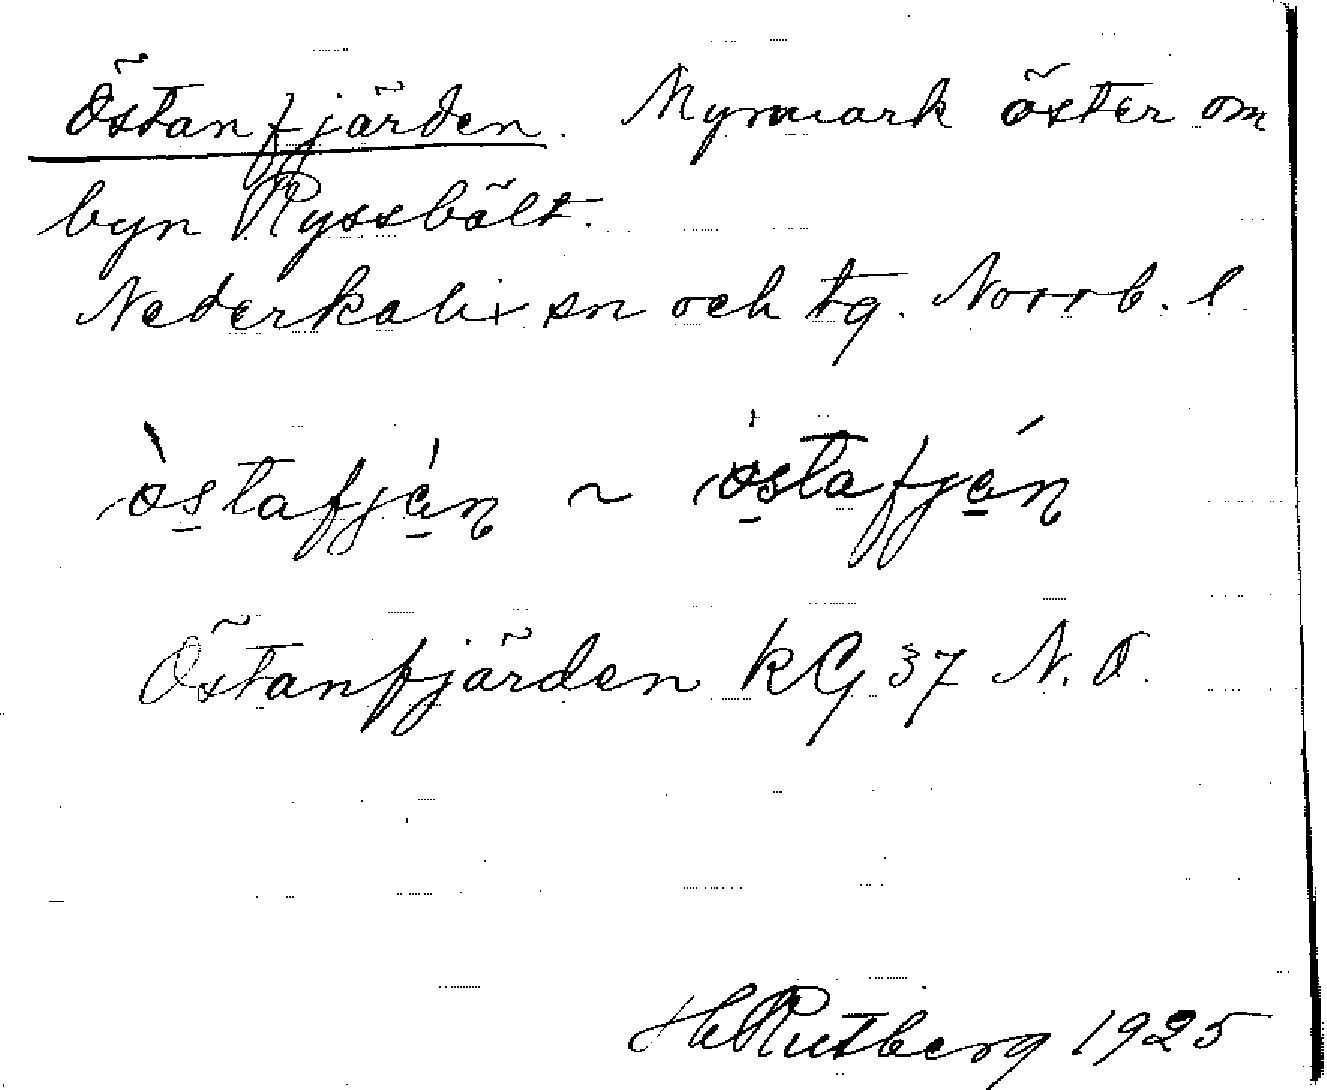 Östanfjärden. Myrmark öster om
byn Ryssbält.
Nederkalix sn och tg. Norrb. l
östafján ~ östafján
Östanfjärden kG 37 N. O.
H Rutberg 1925